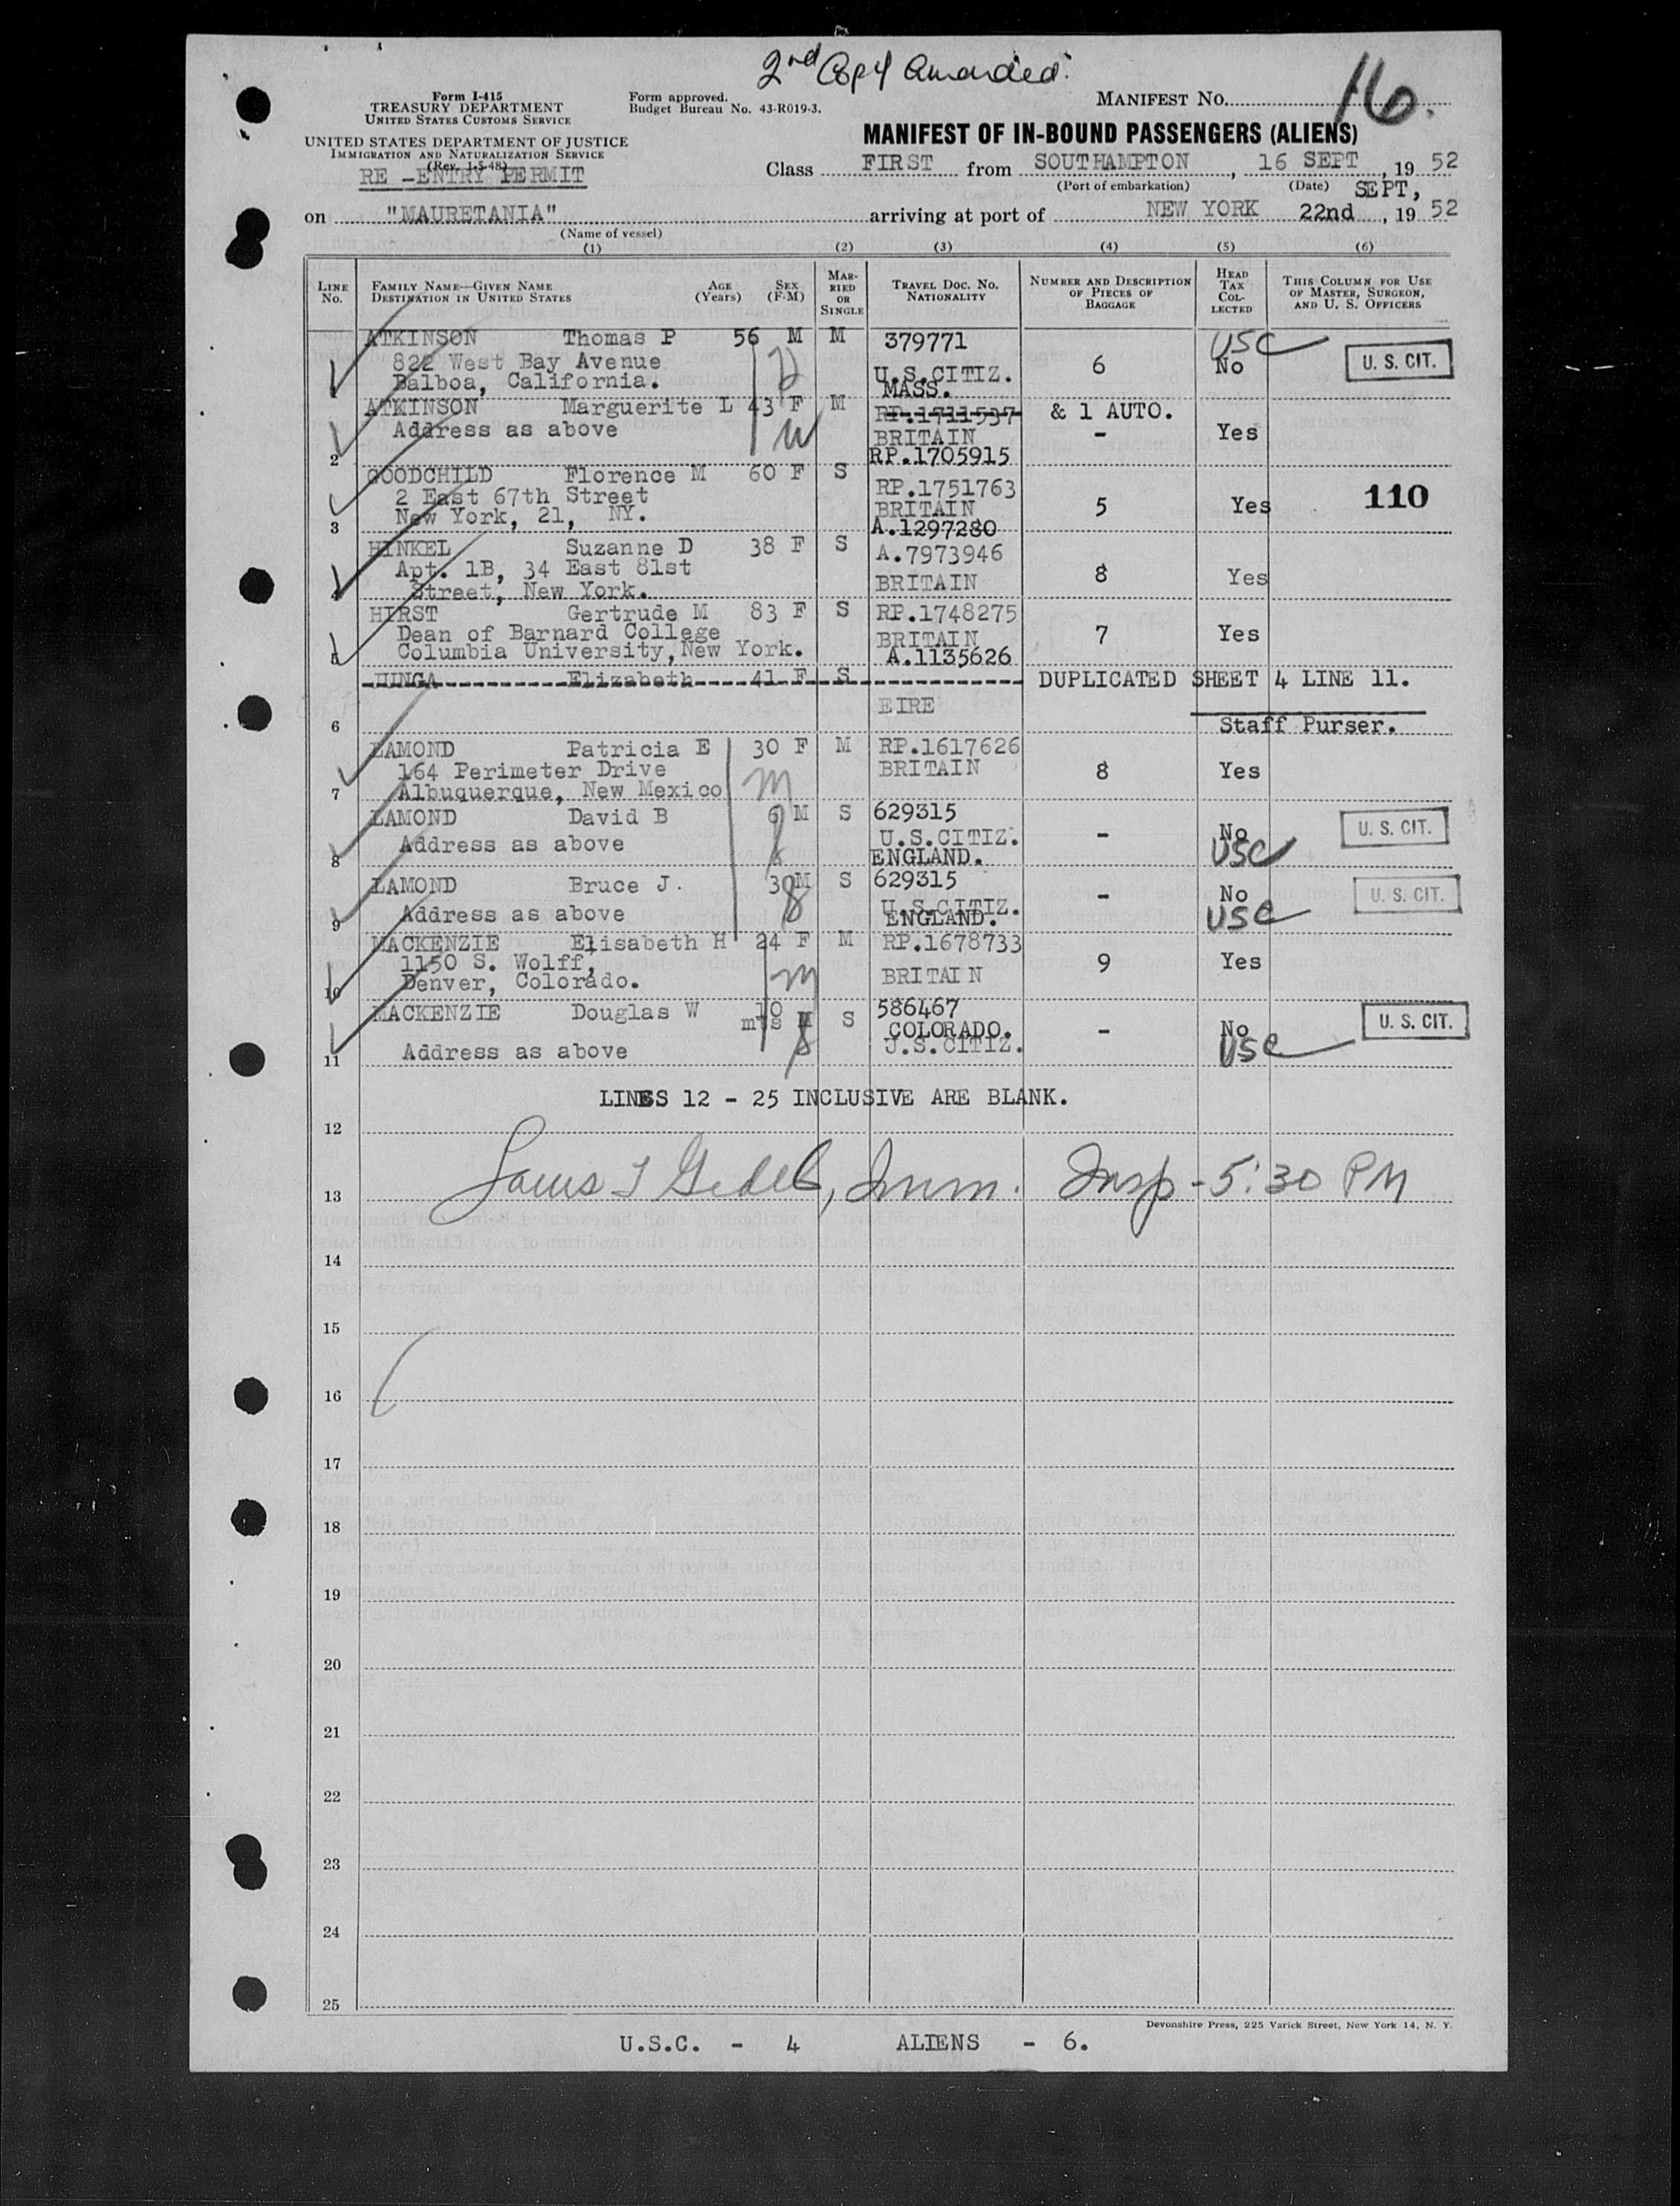 2nd Copy Amended.
16.
Form I-415
TREASURY DEPARTMENT
UNITED STATES CUSTOMS SERVICE
Form approved.
Budget Bureau No. 43-R019-3.
MANIFEST NO.
UNITED STATES DEPARTMENT OF JUSTICE
IMMIGRATION AND NATURALIZATION SERVICE
(Rev. 1-5-48)
RE -ENTRY PERMIT
MANIFEST OF IN-BOUND PASSENGERS (ALIENS)
Class FIRST from SOUTHAMPTON, 16 SEPT, 19 52
(Port of embarkation) (Date)
on "MAURETANIA" arriving at port of NEW YORK SEPT, 22nd, 19 52
(Name of vessel)
(1) (2) (3) (4) (5) (6)
LINE No. FAMILY NAME—GIVEN NAME DESTINATION IN UNITED STATES AGE (Years) SEX (F-M) MARRIED OR SINGLE TRAVEL DOC. NO. NATIONALITY NUMBER AND DESCRIPTION OF PIECES OF BAGGAGE HEAD TAX COLLECTED THIS COLUMN FOR USE OF MASTER, SURGEON, AND U. S. OFFICERS
ATKINSON Thomas P 56 M M 379771 USC
822 West Bay Avenue U.S.CITIZ. 6 No U. S. CIT.
Balboa, California. MASS.
ATKINSON Marguerite L 43 F M RP.1711597 & 1 AUTO.
Address as above W BRITAIN - Yes
2 RP.1705915
GOODCHILD Florence M 60 F S RP.1751763
2 East 67th Street BRITAIN 5 Yes 110
3 New York, 21, NY. A.1297280
HINKEL Suzanne D 38 F S A.7973946
Apt. 1B, 34 East 81st BRITAIN 8 Yes
4 Street, New York.
HIRST Gertrude M 83 F S RP.1748275
Dean of Barnard College BRITAIN 7 Yes
5 Columbia University, New York. A.1135626
JUNGA Elizabeth 41 F S DUPLICATED SHEET 4 LINE 11.
EIRE
6 Staff Purser.
LAMOND Patricia E 30 F M RP.1617626
164 Perimeter Drive m BRITAIN 8 Yes
7 Albuquerque, New Mexico
LAMOND David B 6 M S 629315
Address as above U.S.CITIZ. - No U. S. CIT.
8 ENGLAND. USC
LAMOND Bruce J. 3 M S 629315
Address as above U.S.CITIZ. - No U. S. CIT.
9 ENGLAND. USC
MACKENZIE Elisabeth H 24 F M RP.1678733
1150 S. Wolff, m BRITAIN 9 Yes
10 Denver, Colorado.
MACKENZIE Douglas W 10 mts M S 586467
COLORADO. - No U. S. CIT.
11 Address as above U.S.CITIZ. USC
LINES 12 - 25 INCLUSIVE ARE BLANK.
12
13 Imm. Insp - 5:30 PM
14
15
16
17
18
19
20
21
22
23
24
25
Devonshire Press, 225 Varick Street, New York 14, N. Y.
U.S.C. - 4 ALIENS - 6.